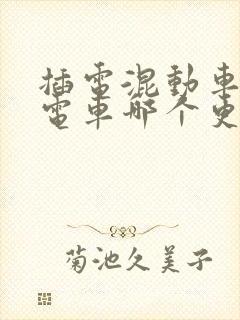 插電混動車
電車哪个更
菊池久美子